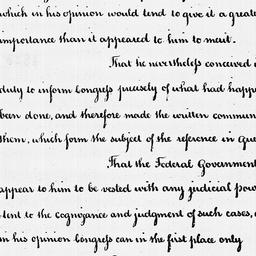 which in his opinion would tend to give it a greate
importance than it appeared to him to merit.
That he nevertheless conceived i
duty to inform Congress precisely of what had happ
been done, and therefore made the written commun
them, which form the subject of the reference in que
That the Federal Government
appear to him to be vested with any judicial pow
tent to the cognizance and judgment of such cases, a
in his opinion Congress can in the first place only